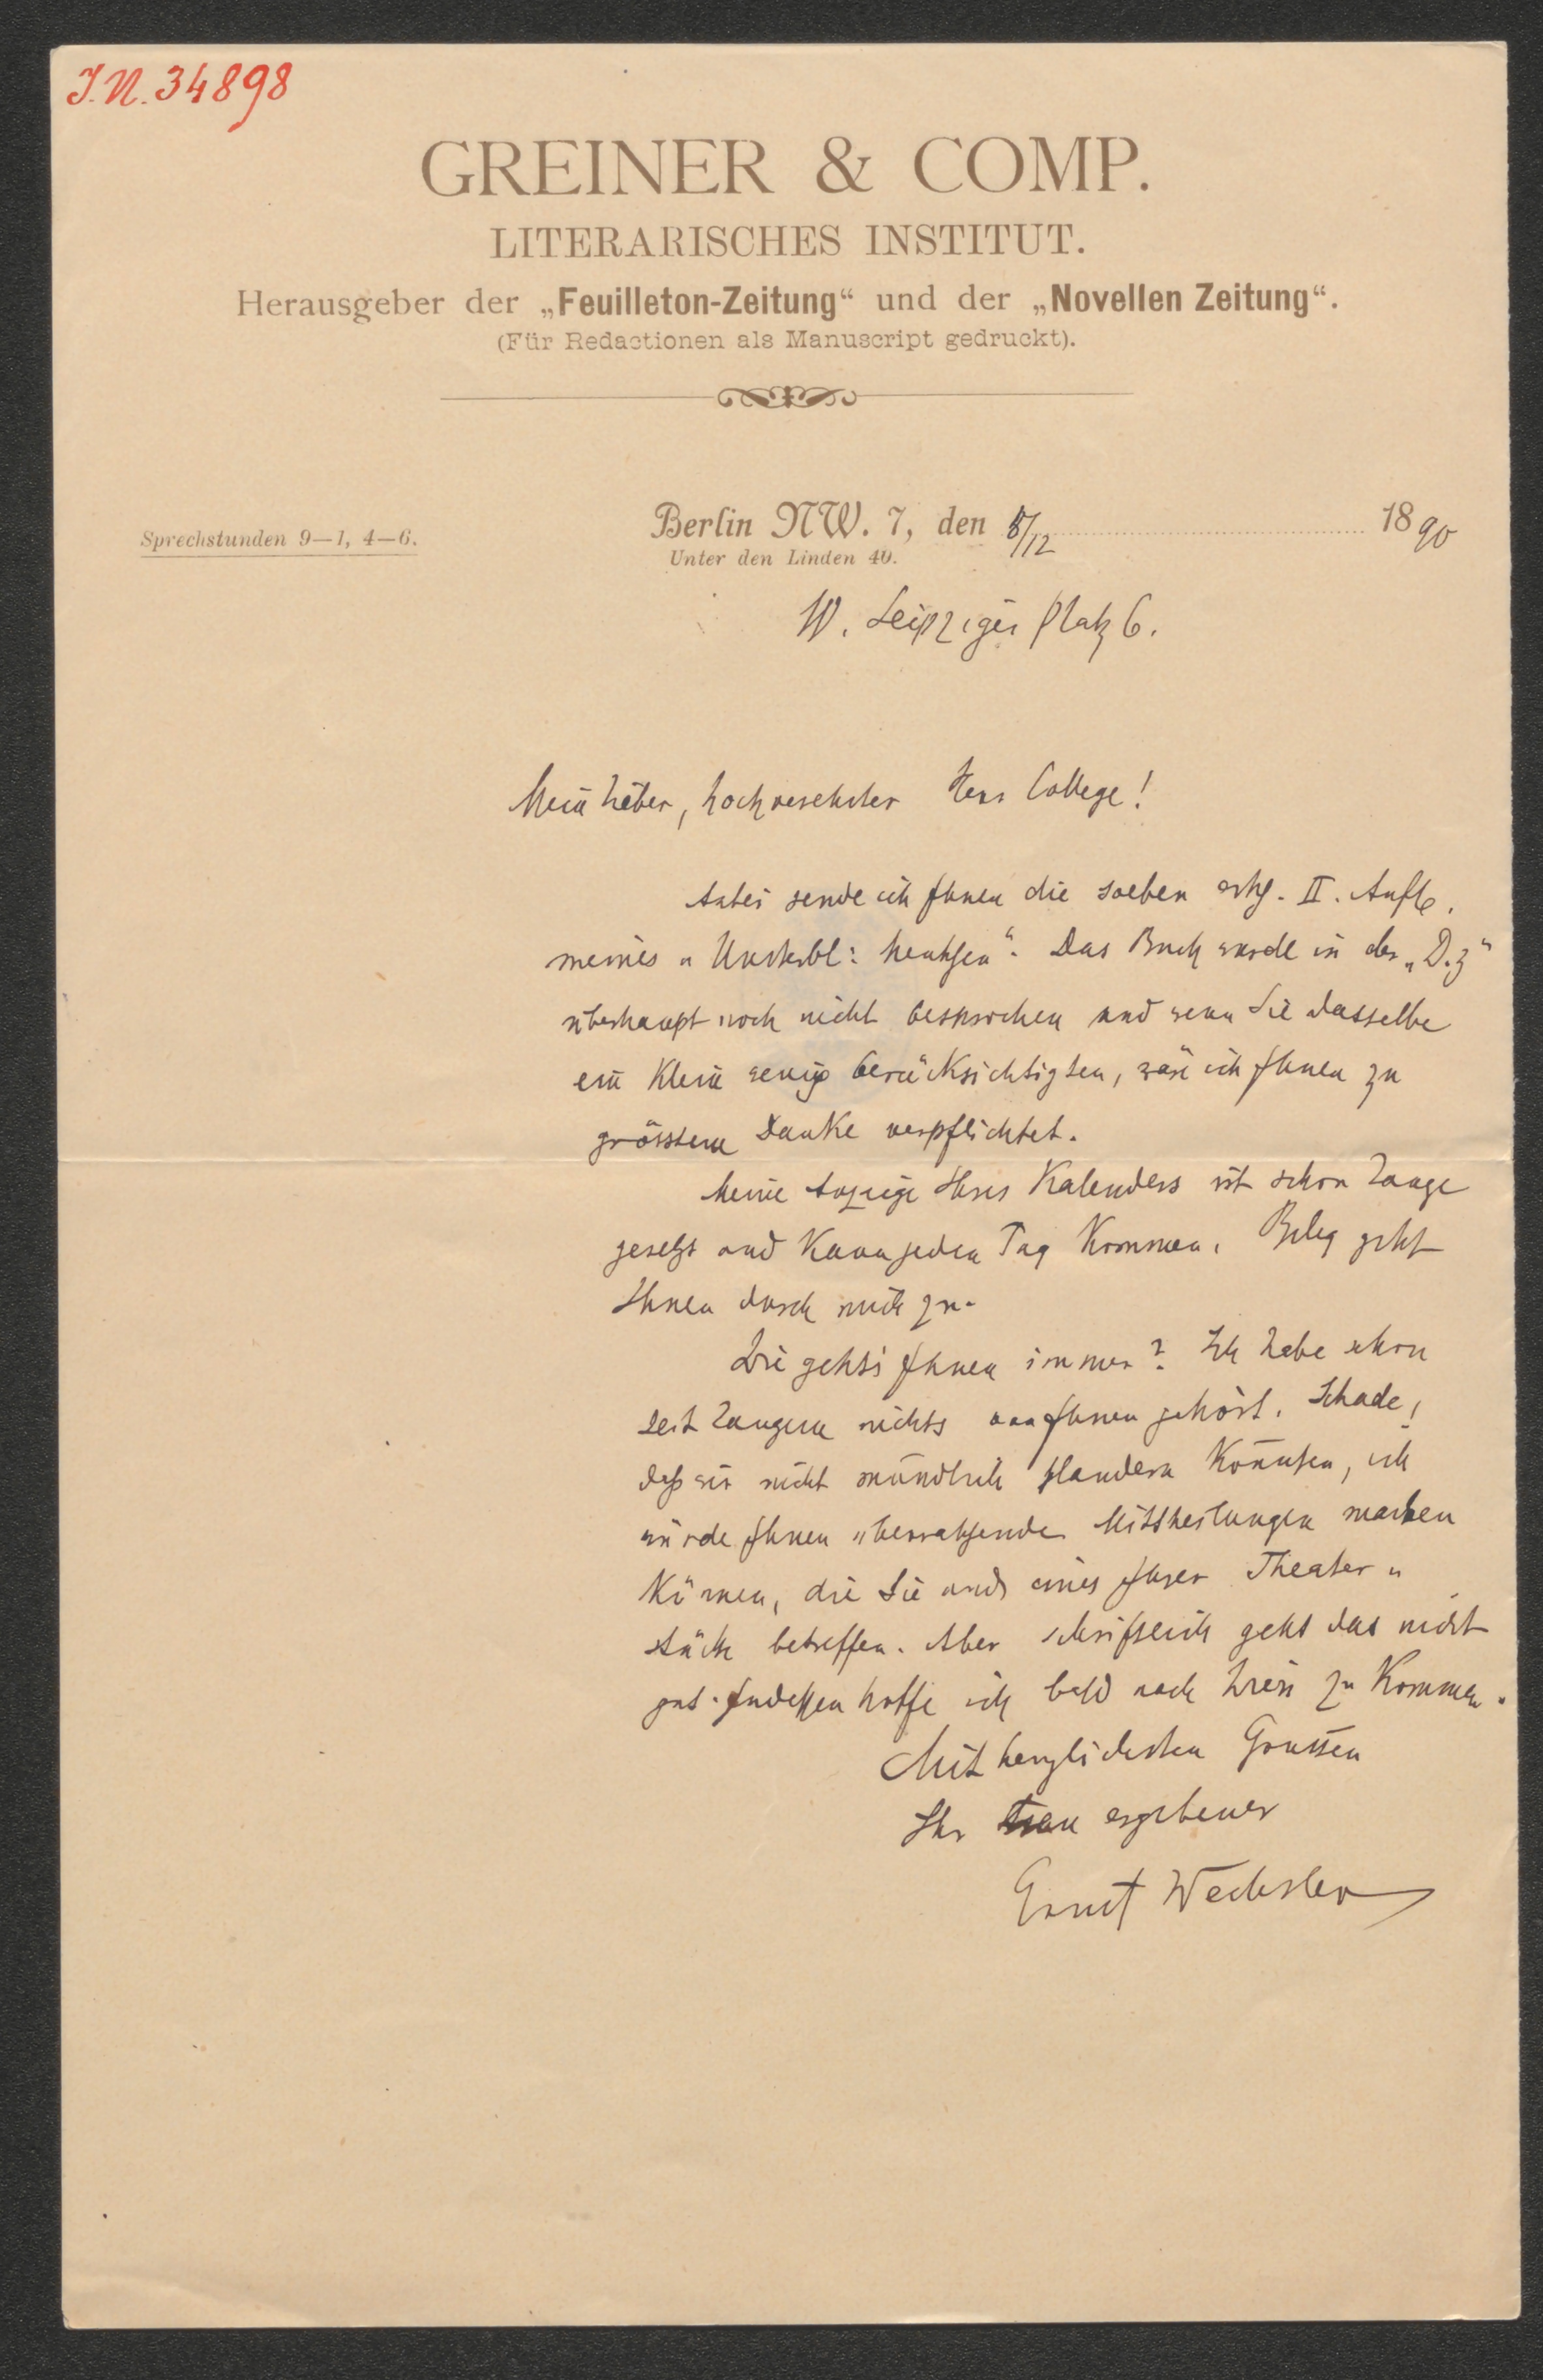 J.N. 34898
GREINER & COMP.
LITERARISCHES INSTITUT.
Herausgeber der „Feuilleton-Zeitung“ und der „Novellen Zeitung“.
(Für Redactionen als Manuscript gedruckt).
Sprechstunden 9—1, 4—6.
Berlin NW. 7, den 8/12 1890
Unter den Linden 40.
W. Leipziger Platz 6.
Mein lieber, hochverehrter Herr College!
Anbei sende ich Ihnen die soeben II. Aufl.
meines „Unsterbl: Menschen“. Das Buch wurde in der „D.Z“
überhaupt noch nicht besprochen und wenn Sie dasselbe
ein klein wenig berücksichtigten, wäre ich Ihnen zu
grösstem Danke verpflichtet.
Meine Anzeige Ihres Kalenders ist schon lange
gesetzt und kann jeden Tag kommen. Beleg geht
Ihnen durch mich zu.
Wie gehts Ihnen immer? Ich habe schon
seit langem nichts von Ihnen gehört. Schade!
daß wir nicht mündlich plaudern könnten, ich
würde Ihnen überraschende Mittheilungen machen
können, die Sie und eines Ihrer Theater„
stücke betreffen. Aber schriftlich geht das nicht
gut. Indessen hoffe ich bald nach Wien zu kommen.
Mit herzlichsten Grüssen
Ihr treu ergebener
Ernst Wechsler